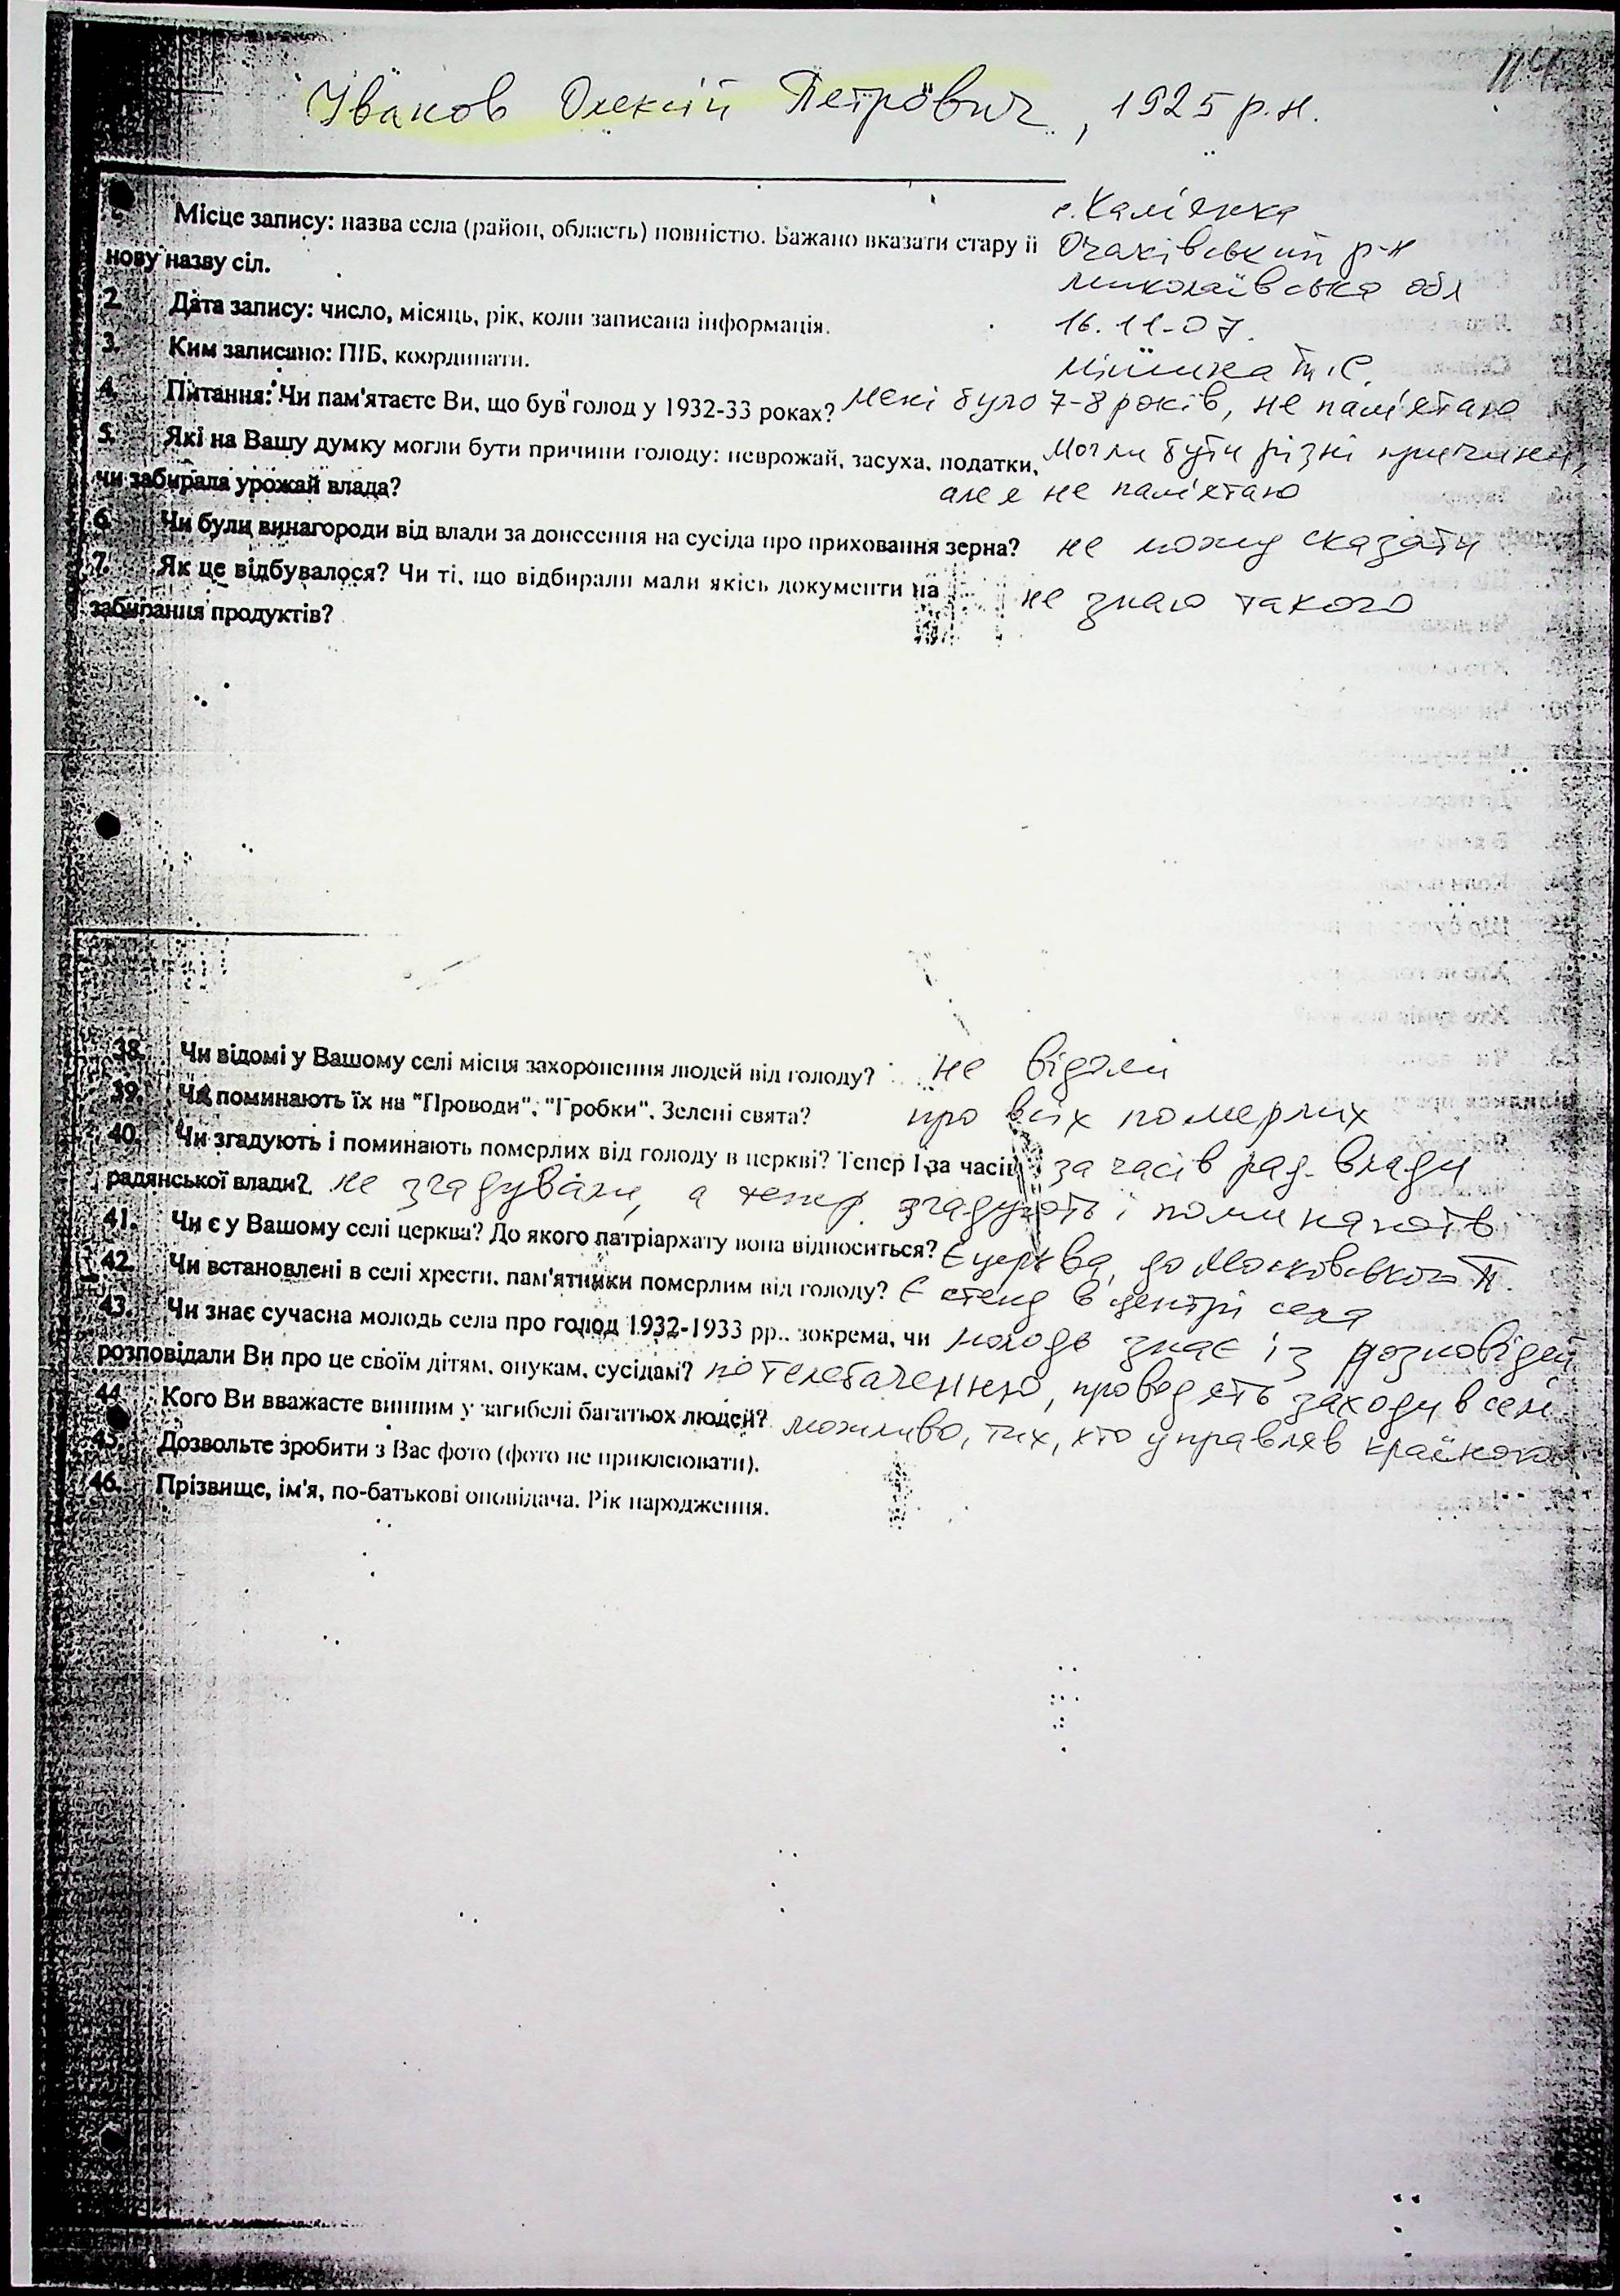 Іванов Олексій Петрович, 1925 р.н.
с. Кам'янка
Місце запису: назва села (район, область) повністю. Бажано вказати стару й Очаківський р-н
нову назву сіл. Миколаївська обл
2. Дата запису: число, місяць, рік, коли записана інформація. 16.11-07.
3. Ким записано: ПІБ, координати. Т.С.
4. Питання: Чи пам'ятаєте Ви, що був голод у 1932-33 роках? Мені було 7-8 років, не пам'ятаю
5. Які на Вашу думку могли бути причини голоду: неврожай, засуха, податки, Могли бути різні причини,
чи забирала урожай влада? але я не пам'ятаю
6. Чи були винагороди від влади за донесення на сусіда про приховання зерна? не можу сказати
7. Як це відбувалося? Чи ті, що відбирали мали якісь документи на не знаю такого
забирання продуктів?
38. Чи відомі у Вашому селі місця захоронення людей від голоду? не відомі
39. Чи поминають їх на "Проводи", "Гробки", Зелені свята? про всіх померлих
40. Чи згадують і поминають померлих від голоду в церкві? Тепер І за часів за часів рад. влади
радянської влади? не згадували, а тепер згадують і поминають
41. Чи є у Вашому селі церква? До якого патріархату вона відноситься? Є церква, до Московського П.
42. Чи встановлені в селі хрести, пам'ятники померлим від голоду? Є стенд в центрі села
43. Чи знає сучасна молодь села про голод 1932-1933 рр., зокрема, чи молодь знає із розповідей
розповідали Ви про це своїм дітям, онукам, сусідам? по телебаченню, проводять заходи в селі
44. Кого Ви вважаєте винним у загибелі багатьох людей? можливо, тих, хто управляв країною
45. Дозвольте зробити з Вас фото (фото не приклеювати).
46. Прізвище, ім'я, по-батькові оповідача. Рік народження.